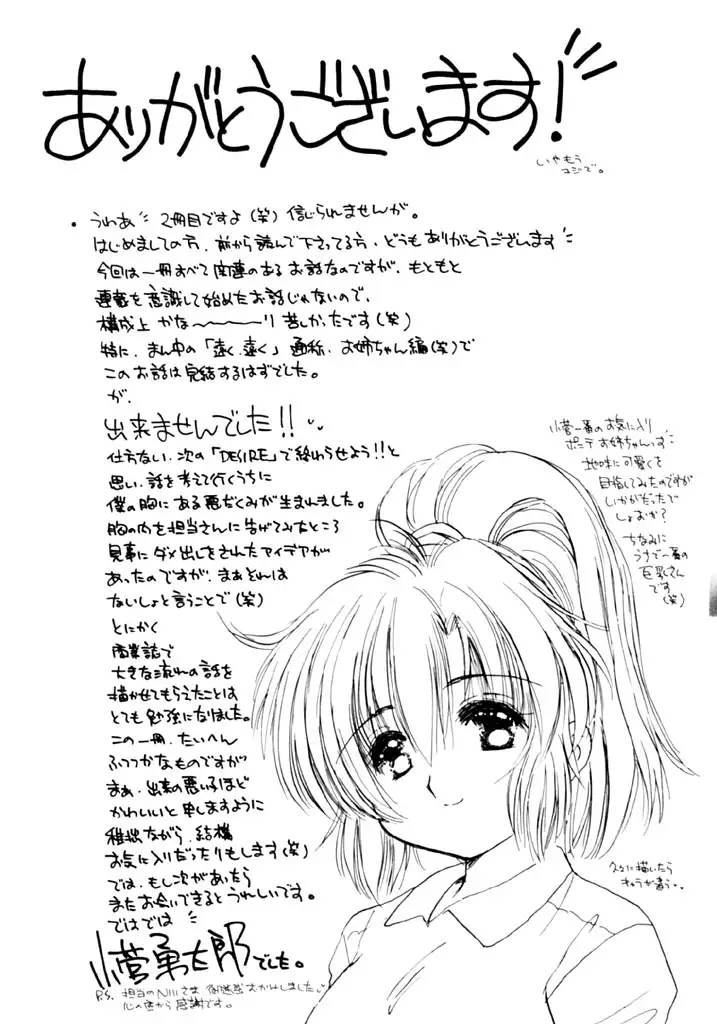 ありがとうございます!
いやもう
マジで。
・うわあ 2冊目ですよ(笑)信じられませんが。
はじめましての方、前から読んで下さってる方、どうもありがとうございます
今回は一冊すべて関連のあるお話なのですが、もともと
連載を意識して始めたお話じゃないので、
構成上かな〜〜〜〜り苦しかったです(笑)
特に、まん中の「遠く、遠く」通称、お姉ちゃん編(笑)で
このお話は完結するはずでした。
が、
出来ませんでした!!
仕方ない、次の「DESIRE」で終わらせよう!!と
思い、話を考えて行くうちに
僕の胸にある悪だくみが生まれました。
胸の内を担当さんに告げてみたところ
見事にダメ出しをされたアイデアが
あったのですが、まぁそれは
ないしょと言うことで(笑)
とにかく
商業誌で
大きな流れの話を
描かせてもらえたことは
とても勉強になりました。
この一冊、たいへん
ふつつかなものですが
まぁ、出来の悪い子ほど
かわいいと申しますように
稚拙ながら、結構
お気に入りだったりもします(笑)
では、もし次があったら
またお会いできるとうれしいです。
ではでは
小菅勇太郎でした。
P.S. 担当のNIIIさま 御迷惑おかけしました。
心の底から感謝です。
小菅一番のお気に入り
ポニテお姉ちゃんです
地味に可愛くを
目指してみたのですが
いかがだったで
しょおか?
ちなみに
うちで一番の
巨乳さん
です
(笑)
久々に描いたら
キャラが違う・・